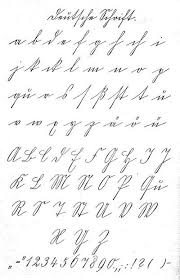 Deutsche Schrift.
a b c d e f g h ch i
j k ck l m n o p
qu r s ſ ß ſt t u
v w x y z ä ö ü
A B C D E F G H I J
K L M N O P Qu
R S T St U V W
X Y Z
„-“ 1 2 3 4 5 6 7 8 9 0 , . ; : ! ? ( )